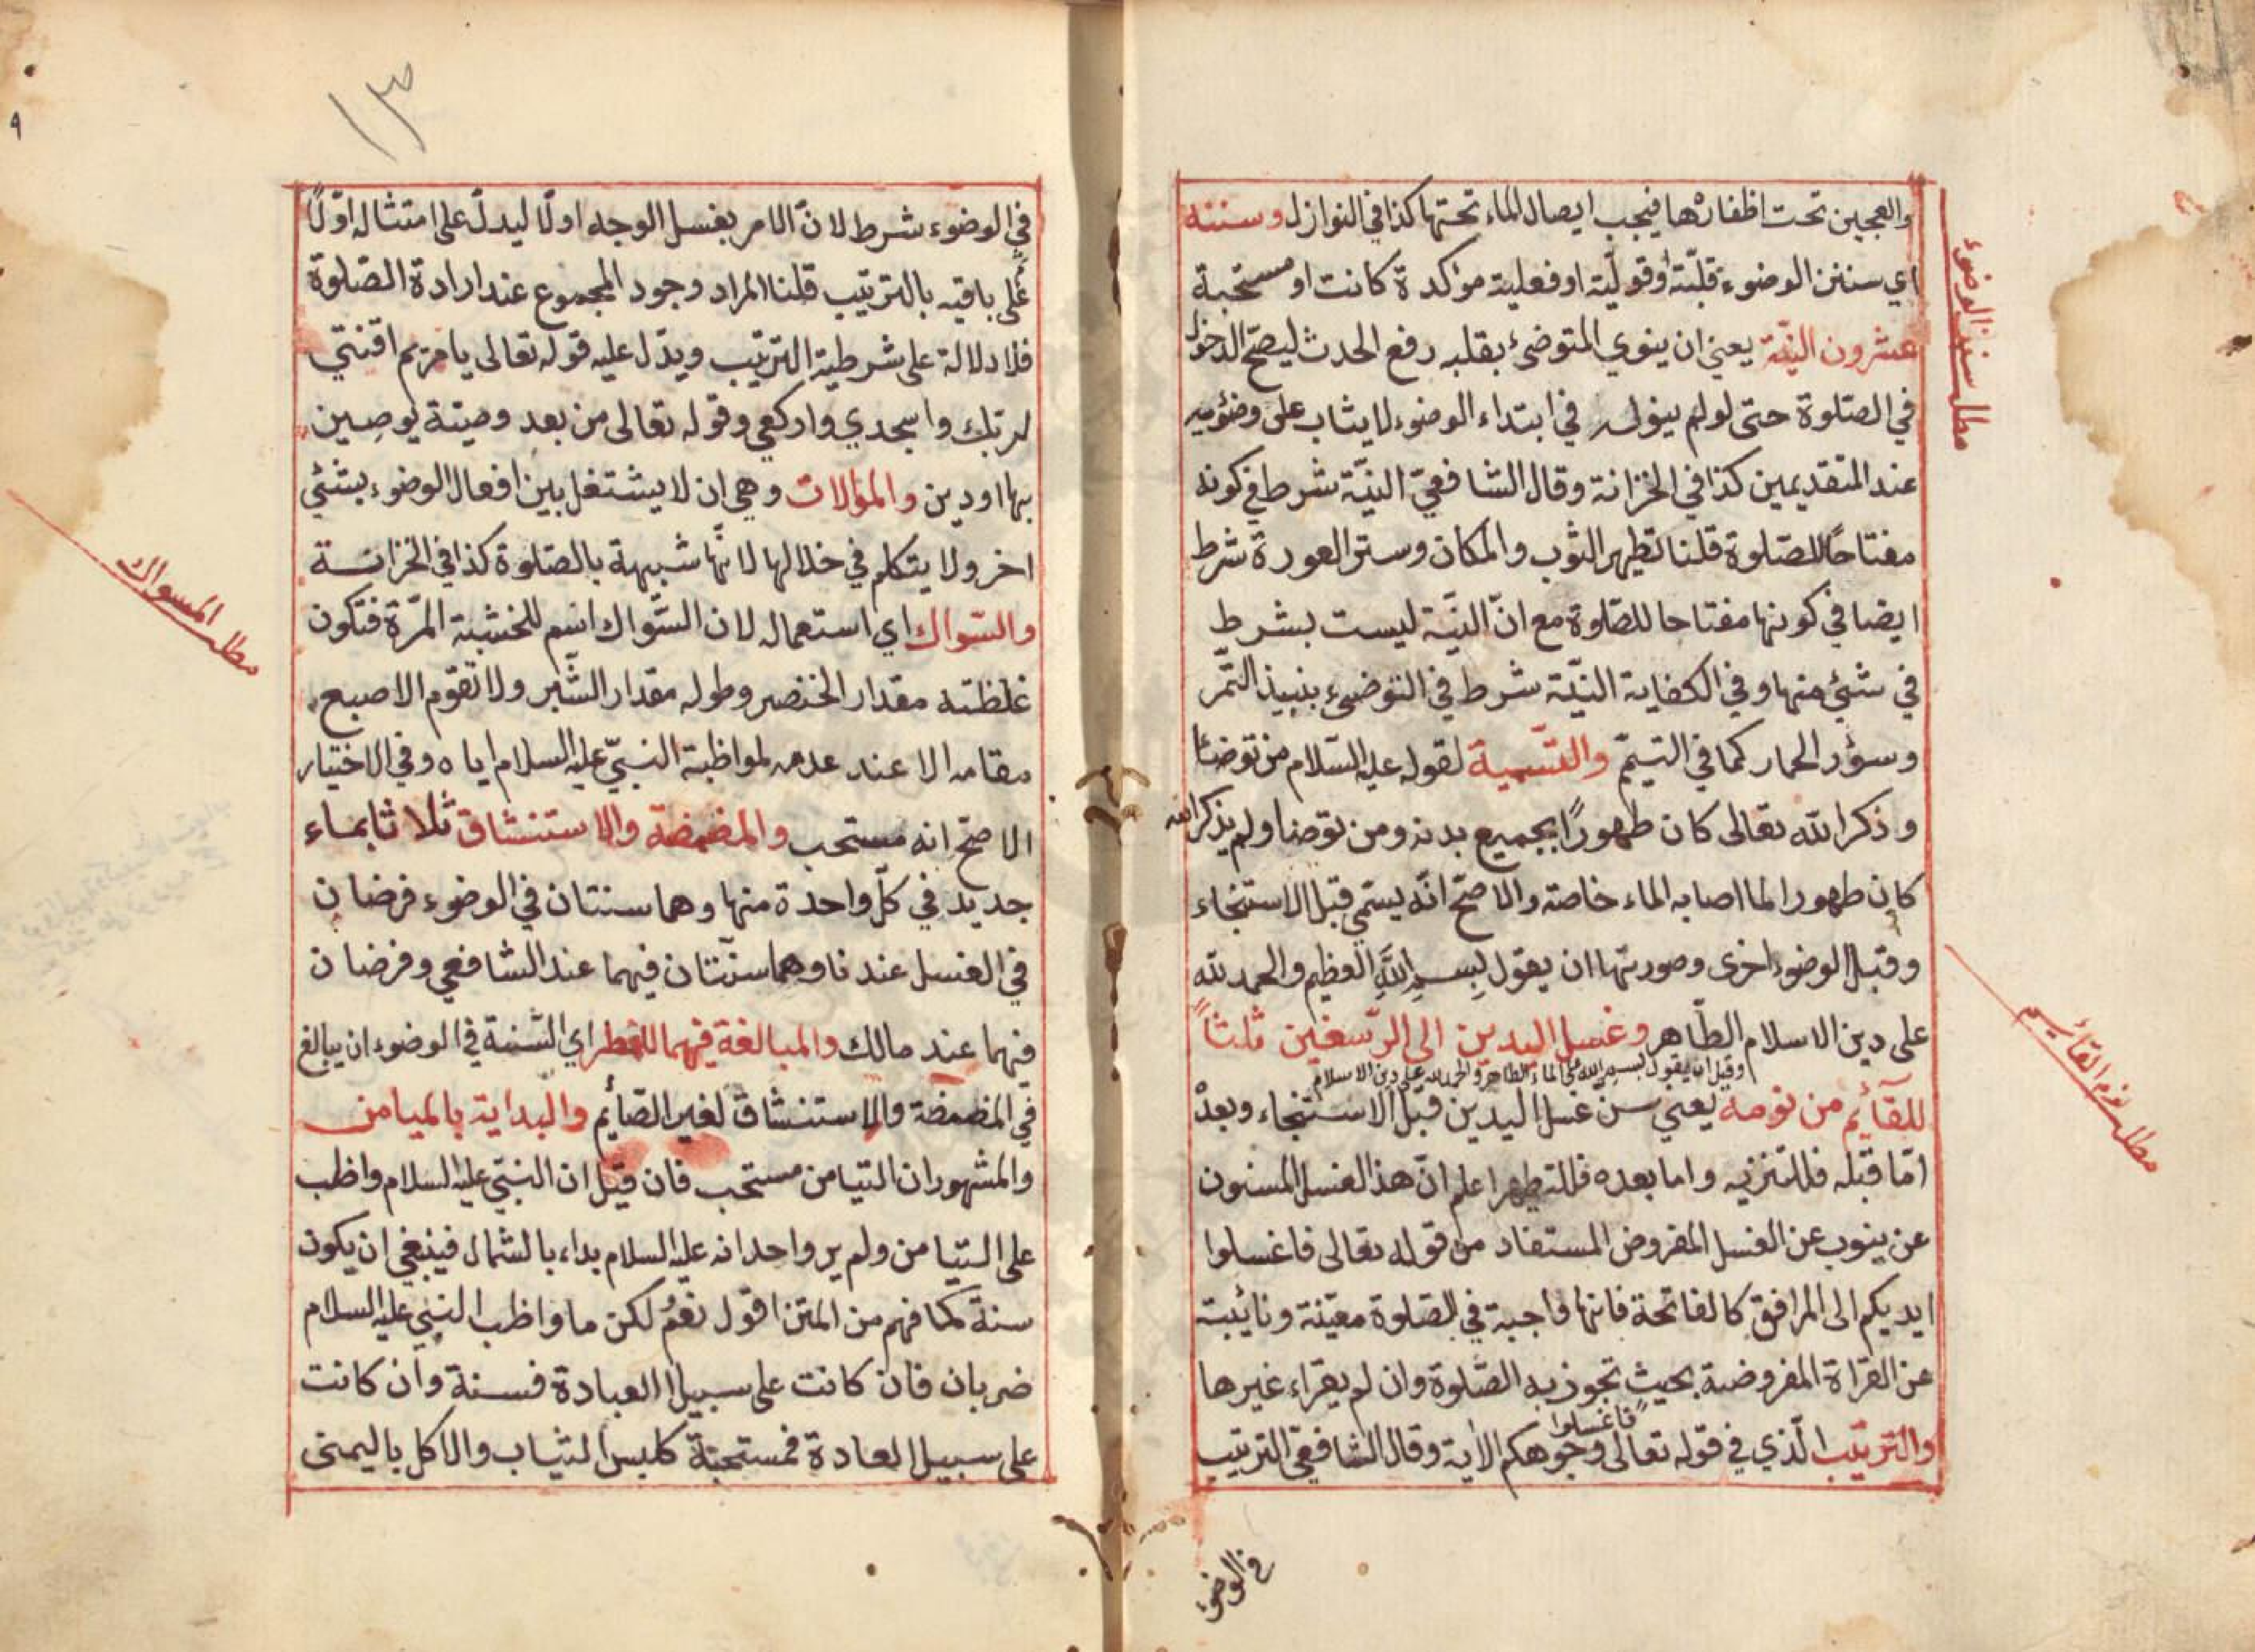 والعجين تحت اظفارها فيجب ايصال الماء تحتها كذا في النوازل وسننه
اي سنن الوضوء قلبية او قولية او فعلية مؤكدة كانت او مستحبة
عشرون النيّة يعني ان ينوي المتوضئ بقلبه رفع الحدث ليصحّ الدخول
في الصلوة حتى لو لم ينو في ابتداء الوضوء لا يثاب على وضوئيه
عند المتقديمين كذا في الخزانة وقال الشافعيّ النيّة شرط في كونه
مفتاحًا للصّلوة قلنا تطهير الثوب والمكان وستر العورة شرط
ايضا في كونها مفتاحا للصّلوة مع انّ النيّة ليست بشرط
في شئ منها وفي الكفاية النيّة شرط في التوضئ بنبيذ التّمر
وسؤر الحمار كما في التيمّم والتّسمية لقوله عليه السّلام من توضئا
وذكر الله تعالى كان طهورًا بجميع بدنه ومن توضا ولم يذكر الله
كان طهورا لما اصابه الماء خاصة والاصحّ انّه يسمّي قبل الاستنجاء
وقبل الوضوء اخرى وصورتها ان يقول بِسمِ اللهِ العظيم والحمد لله
على دين الاسلام الطّاهر وغسل اليدين الى الرّسغين ثلثاً
وقيل ان يقول بسم الله على الماء الطاهر والحمد لله على دين الاسلام
للقآئم من نومه يعني سن غسل اليدين قبل الاستنجاء وبعدْ
امّا قبله فللتنزيه واما بعده فللتطهير اعلم انّ هذ الغسل المسنون
عن ينوب عن الغسل المفروض المستفاد من قوله تعالى فاغسلوا
ايديكم الى المرافق كالفاتحة فانها واجبة في الصلوة معيّنة ونائبة
عن القراة المفروضة بحيث تجوز به الصّلوة وان لم يقراء غيرها
والترتيب الّذي في قوله تعالى فاغسلوا وجوهكم الاية وقال الشافعيّ الترتيب
في الوضوء
مطلب سنن الوضوء
مطلب نوم القائم
١٣
٩
في الوضوء شرط لانّ الامر بغسل الوجه اولًا ليدلّ على امتثاله اوّلاً
على باقيه بالترتيب قلنا المراد وجود المجموع عند ارادة الصّلوة
فلا دلالة على شرطية الترتيب ويدّل عليه قوله تعالى يا مريم اقنتي
لربك واسجدي واركعي وقوله تعالى من بعد وصيّة يوصين
بها او دين والموالات وهي ان لا يشتغل بين افعال الوضوء بشئي
اخر ولا يتكلم في خلالها لانّها شبيهة بالصّلوة كذا في الخزانة
والسّواك اي استعماله لان السّواك اسم للخشبة المّرة فتكون
غلظته مقدار الخنصر وطوله مقدار الشّبر ولا تقوّم الاصبع
مقامه الا عند عدمه لمواظبة النبيّ عليه السلام اياه وفي الاختيار
الاصحّ انه مستحب والمضمضة والاستنشاق ثلاثا بماء
جديد في كلّ واحدة منها وهما سنتان في الوضوء فرضان
في الغسل عندنا وهما سنّتان فيهما عند الشافعي وفرضان
فيهما عند مالك والمبالغة فيهما للفطر اي السّنة في الوضوء ان يبالغ
في المضمضة والاستنشاق لغير الصّائم والبداية بالميامن
والمشهور ان التيامن مستحب فان قيل ان النبيّ عليه السلام واظب
على التيامن ولم ير واحد انه عليه السلام بداء بالشمال فينبغي ان يكون
سنة كما فهم من المتن اقول نعمْ لكن ما واظب النبي عليه السلام
ضربان فان كانت على سبيل العبادة فسنة وان كانت
على سبيل العادة فمستحبّة كلبس الثياب والاكل باليمنى
مطلب المسواك